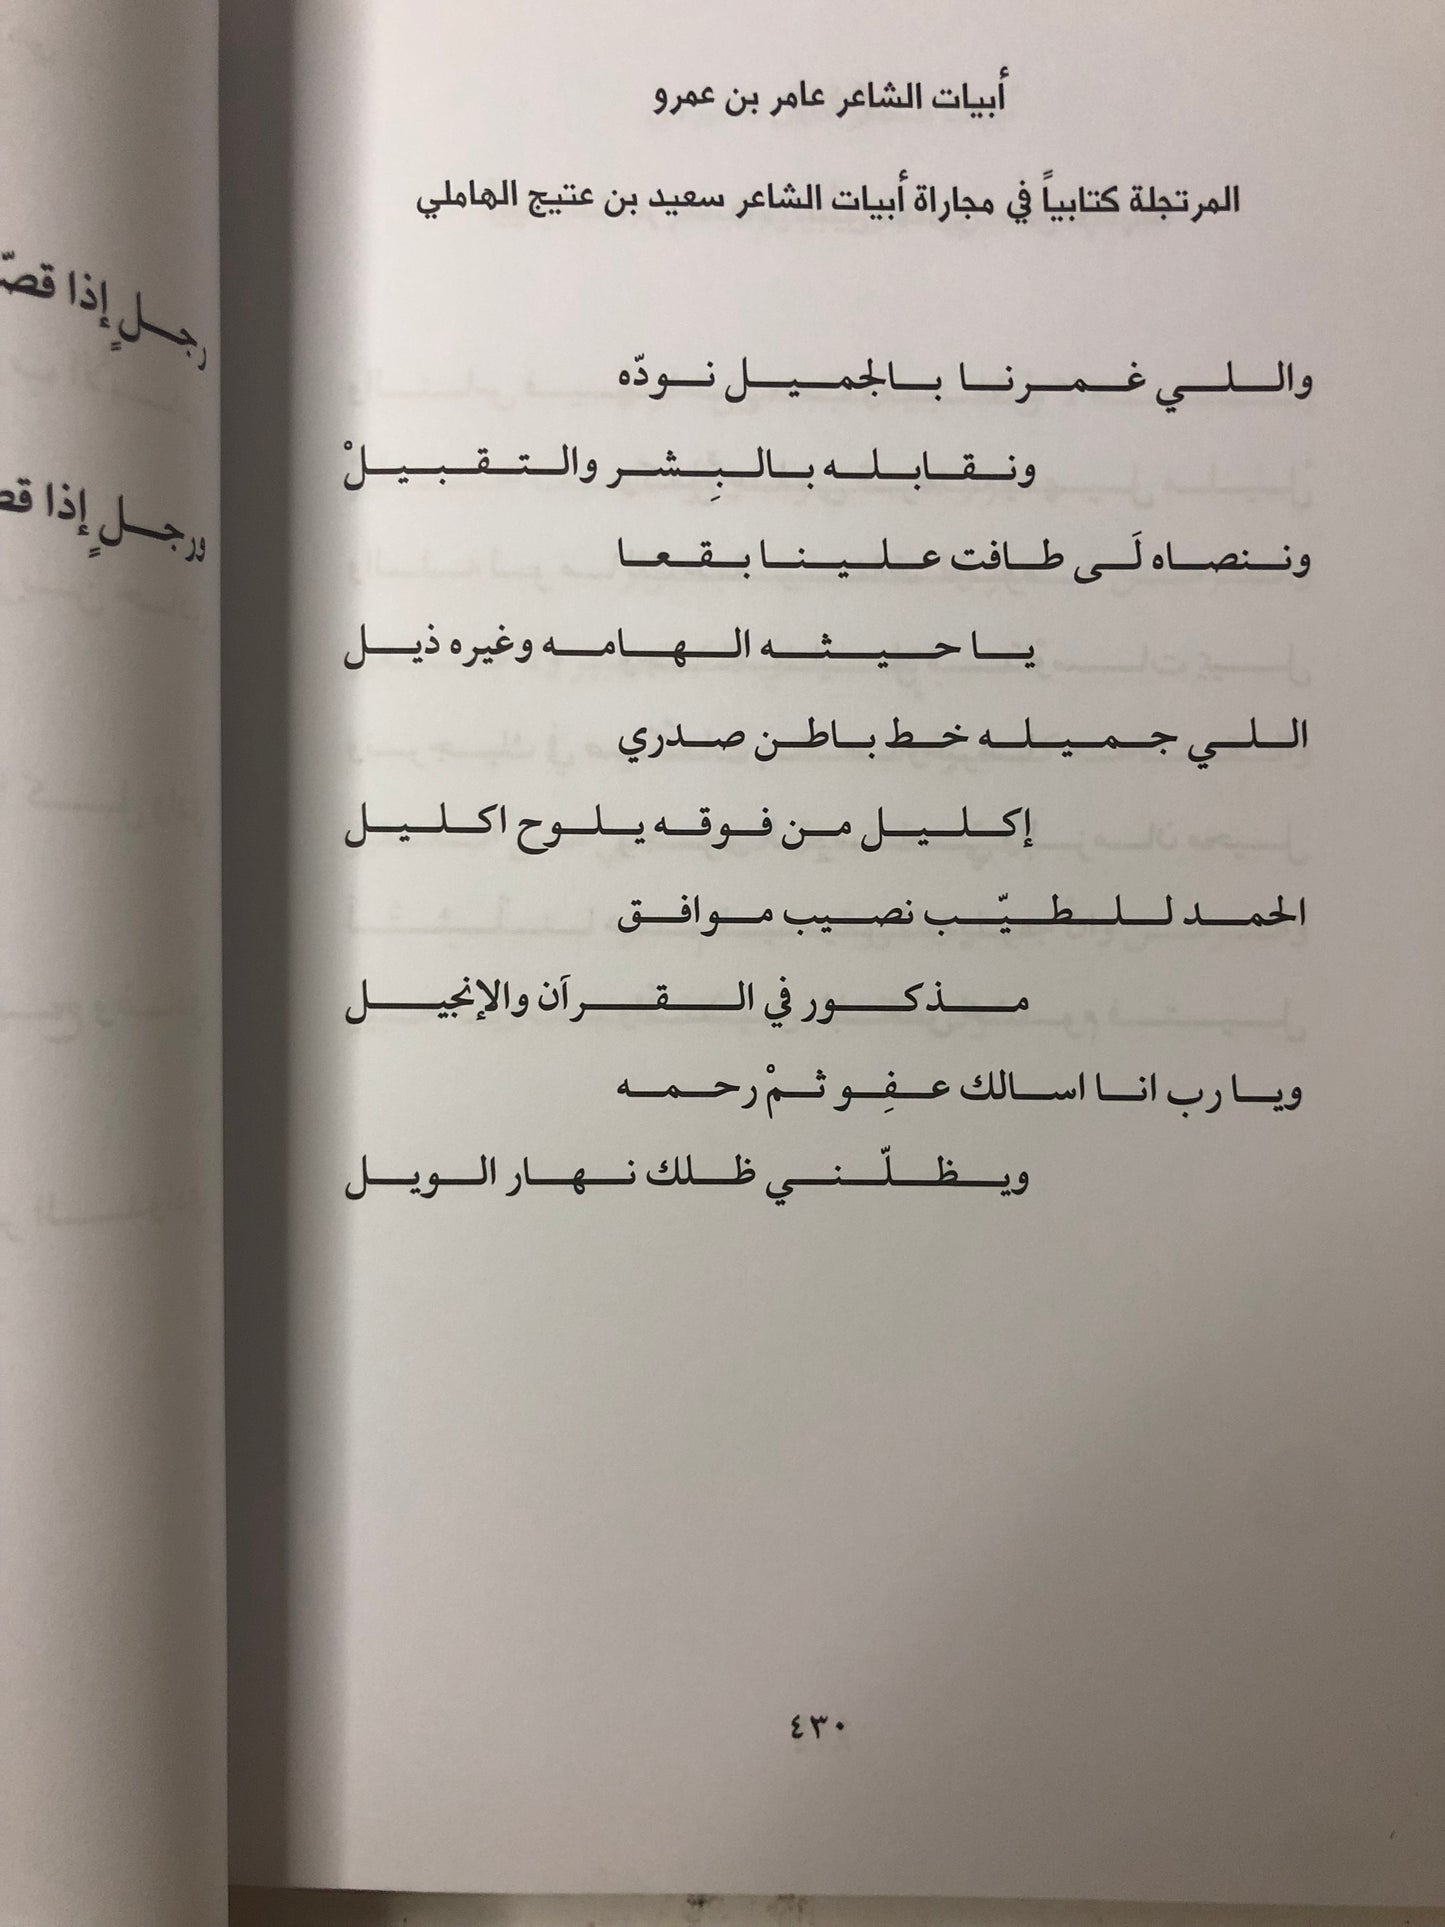 أبيات الشاعر عامر بن عمرو
المرتجلة كتابياً في مجاراة أبيات الشاعر سعيد بن عتيج الهاملي
واللي غمرنا بالجميل نودّه
ونقابله بالبِشر والتقبيلْ
وننصاه لَى طافت علينا بقعا
يا حيثه الهامه وغيره ذيل
اللي جميله خط باطن صدري
إكليل من فوقه يلوح اكليل
الحمد للطيّب نصيب موافق
مذكور في القرآن والإنجيل
ويا رب انا اسالك عفِو ثمْ رحمه
ويظلّني ظلك نهار الويل
٤٣٠
رجلٍ إذا
ورجلٍ إذا